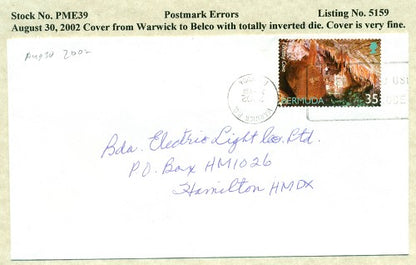 Stock No. PME39 Postmark Errors Listing No. 5159
August 30, 2002 Cover from Warwick to Belco with totally inverted die. Cover is very fine.
Aug 30 2002
BERMUDA 35
Bda. Electric Light Co. Ltd.
P.O. Box HM1026
Hamilton HMDX